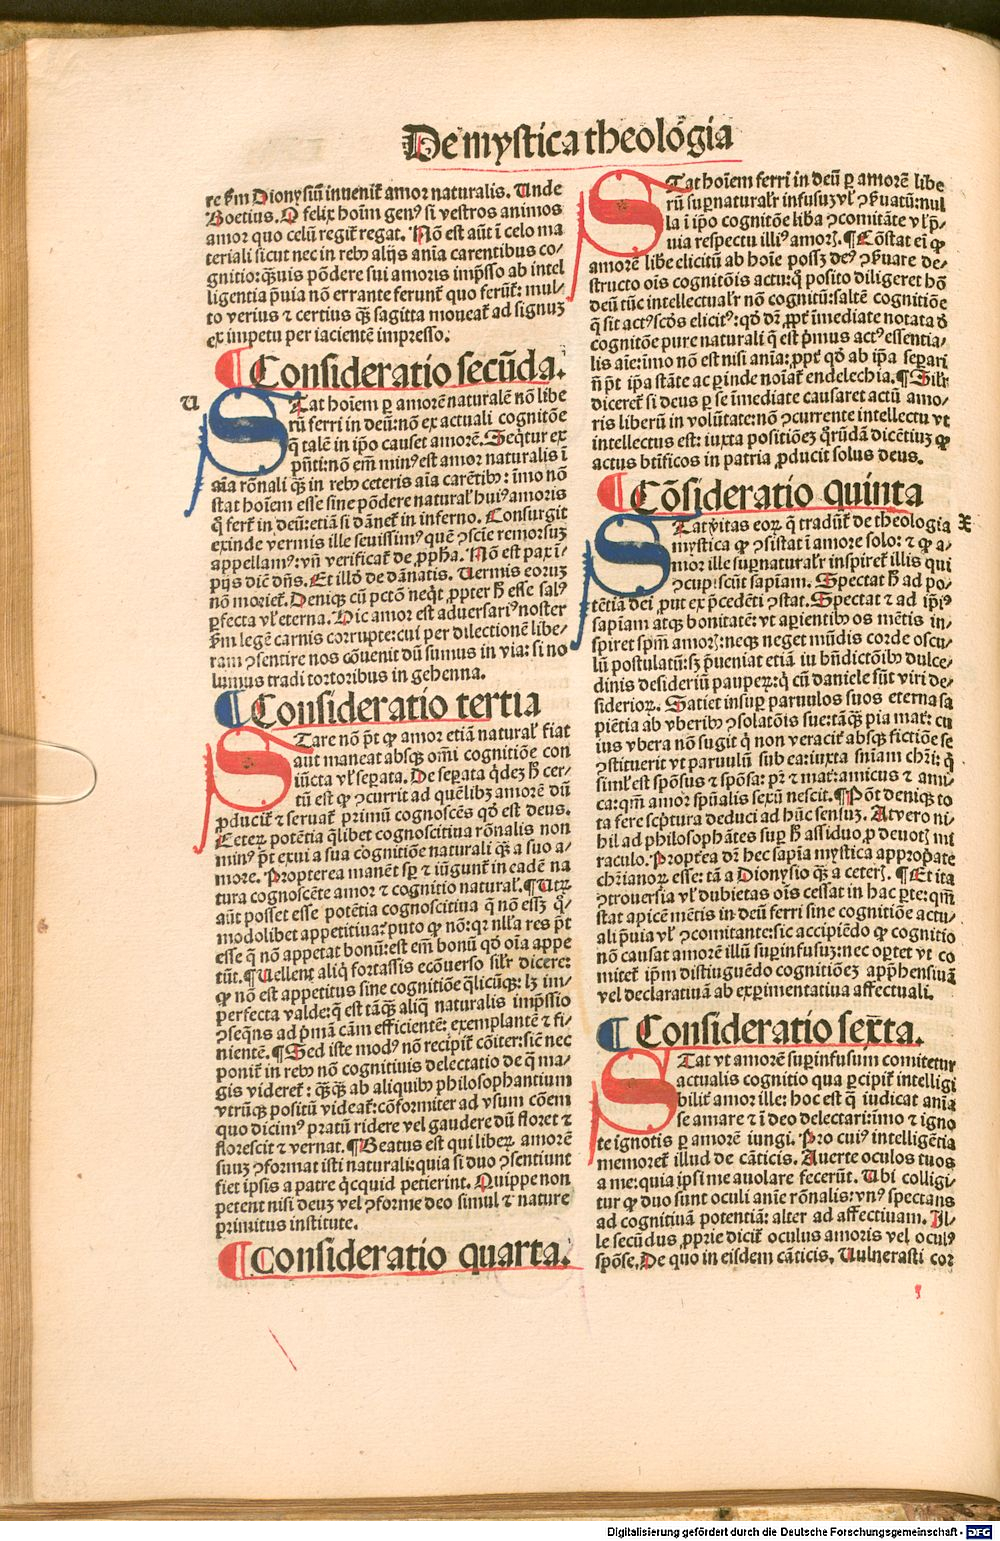 De mystica theologia
re ẜm Dionysiū inuenit᷑ amor naturalis. Unde
Boetius. O felix hoīm genꝰ si vestros animos
amor quo celū regit᷑ regat. Nō est aūt ī celo ma
teriali sicut nec in rebꝰ alijs aīa carentibus co-
gnitio: qͣꝫuis pōdere sui amoris imp̄sso ab intel
ligentia p̄uia nō errante ferunt᷑ quo ferūt᷑: mul-
to verius ⁊ certius qͣꝫ sagitta moueat᷑ ad signuꝫ
ex impetu per iacientē impresso.
Consideratio secūda.
U
STat hoīem ꝑ amorē naturalē nō libe
rū ferri in deū: nō ex actuali cognitōe
q̄ talē in ip̄o causet amorē. Seqͥtur ex
pn̄ti: nō em̄ minꝰ est amor naturalis ī
aīa rōnali qͣꝫ in rebꝰ ceteris aīa carētibꝰ: īmo nō
stat hoīem esse sine pōdere natural᷑ huiꝰ amoris
q̄ fert᷑ in deū: etiā si dānet᷑ in inferno. Consurgit
exinde vermis ille seuissimꝰ quē ↄscie remorsuꝫ
appellamꝰ: vn̄ verificat᷑ de ꝓpha. Nō est pax ī-
pijs dic̄ dn̄s. Et illō de dānatis. Uermis eoruꝫ
nō moriet᷑. Denique cū pctō neqͥt, propter hͦ esse salꝰ
ꝑfecta vl᷑ eterna. Hic amor est aduersariꝰ noster
ẜm legē carnis corrupte: cui per dilectionē libe-
ram ↄsentire nos cōuenit dū sumus in via: si no
lumus tradi tortoribus in gehenna.
Consideratio tertia
STare nō pōt ꝙ amor etiā natural᷑ fiat
aut maneat absqꝫ om̄i cognitiōe con
iūcta vl᷑ seꝑata. De seꝑata qͥdeꝫ hͦ cer-
tū est ꝙ ↄcurrit ad quēlibꝫ amorē dū
ꝓducit᷑ ⁊ seruat᷑ primū cognoscēs qͦd est deus.
Ceteꝝ potētia q̄libet cognoscitiua rōnalis non
minꝰ pōt exui a sua cognitiōe naturali qͣꝫ a suo a-
more. Propterea manēt sꝑ ⁊ iūgunt᷑ in eadē na
tura cognoscēte amor ⁊ cognitio natural᷑. ¶Utꝝ
aūt posset esse potētia cognoscitiua q̄ nō essꝫ qͦ-
modolibet appetitiua? puto ꝙ nō: qꝛ nll̄a res pōt
esse q̄ nō appetat bonū: est em̄ bonū qͦd oīa appe
tūt. ¶Uellent aliqͥ fortassis ecōuerso sil᷑r dicere:
ꝙ nō est appetitus sine cognitiōe q̄licūqꝫ: lꝫ im-
perfecta valde: q̄ est tāqͣꝫ aliqͣ naturalis imp̄ssio
ↄseqn̄s ad pͥmā cām efficientē: exemplantē ⁊ fi-
nientē. ¶Sed iste modꝰ nō recipit᷑ cōiter: sic̄ nec
ponit᷑ in rebꝰ nō cognitiuis delectatio de q̄ ma-
gis videret᷑: qͣꝫqͣꝫ ab aliquibꝰ philosophantium
vtrūqꝫ positū videat᷑: cōformiter ad vsum cōem
quo dicimꝰ pratū ridere vel gaudere dū floret ⁊
florescit ⁊ vernat. ¶Beatus est qui liberꝝ amorē
suuꝫ ↄformat isti naturali: quia si duo ↄsentiunt
fiet ipsis a patre qͥcquid petierint. Quippe non
petent nisi deuꝫ vel ↄforme deo simul ⁊ nature
pͥmitus institute.
Consideratio quarta.
STat hoīem ferri in deū ꝑ amorē libe
rū suꝑnatural᷑r infusuꝫ vl᷑ ↄẜuatū: nul
la ī ip̄o cognitōe liba ↄcomitāte vl᷑ p̄-
uia respectu illiꝰ amorꝭ. ¶Cōstat ei ꝙ
amorē libe elicitū ab hoīe possꝫ deꝰ ↄẜuare de-
structo oīs cognitōis actu: qͦ posito diligeret hō
deū tūc intellectual᷑r nō cognitū: saltē cognitiōe
q̄ sit actꝰ scd̄s elicitꝰ: qͦd dr̄, ꝓpt᷑ īmediate notata ꝺ
cognitōe pure naturali q̄ est pͥmus actꝰ essentia-
lis aīe: īmo nō est nisi anīa: ꝓpt᷑ qͦd ab ip̄a seꝑari
n̄ pōt ip̄a stāte ac ꝑinde noīat᷑ endelechia. ¶Sil᷑r
diceret᷑ si deus ꝑ se īmediate causaret actū amo-
ris liberū in volūtate: nō ↄcurrente intellectu vt
intellectus est: iuxta positiōeꝫ qͦrūdā dicētiuꝫ ꝙ
actus btīficos in patria ꝓducit solus deus.
Cōsideratio quinta
X
STat v̓itas eoꝝ q̄ tradūt᷑ de theologia
mystica ꝙ ↄsistat ī amore solo: ⁊ ꝙ a-
mor ille suꝑnatural᷑r inspiret᷑ illis qui
ↄcupiscūt sapīam. Spectat hͦ ad po-
tētiā dei, ꝓut ex p̄cedēti ↄstat. Spectat ⁊ ad ip̄iꝰ
sapīam atqꝫ bonitatē: vt aꝑientibꝰ os mētis in-
spiret spm̄ amorꝭ: neqꝫ neget mūdis corde oscu-
lū postulatū: sꝫ p̄ueniat etiā iu bn̄dictōibꝰ dulce-
dinis desideriū pauperꝝ: qͥ cū daniele sūt viri de-
sideriorꝝ. Satiet insuꝑ paruulos suos eterna sa
piētia ab vberibꝰ ↄsolatōis sue: tāqͣꝫ pia mat᷑: cu
ius vbera nō sugit qͥ non veracit᷑ absqꝫ fictiōe se
ↄstituerit vt paruulū sub ea: iuxta snīam chr̄i: qͥ
simul᷑ est spōsus ⁊ spōsa: pr̄ ⁊ mat᷑: amicus ⁊ ami
ca: qm̄ amor spūalis sexū nescit. ¶Pōt deniqꝫ to
ta fere scpͥtura deduci ad hūc sensuꝫ. At vero ni-
hil ad philosophātes suꝑ hͦ assiduo, ꝓ deuotꝭ mi
raculo. Propt̓ea dr̄ hec sapīa mystica appropͥate
chr̄ianoꝝ esse: tā a Dionysio qͣꝫ a ceterꝭ. ¶Et ita
ↄtrouersia vl᷑ dubietas oīs cessat in hac ꝑte: qm̄
stat apicē mētis in deū ferri sine cognitiōe actu-
ali p̄uia vl᷑ ↄcomitante: sic accipiēdo ꝙ cognitio
nō causat amorē illū suꝑinfusuꝫ: nec oꝑtet vt co
mitet᷑ ip̄m distinguēdo cognitiōeꝫ app̄hensiuā
vel declaratiuā ab experimentatiua affectuali.
Consideratio sexta.
STat vt amorē suꝑinfusum comitetur
actualis cognitio qua ꝑcipit᷑ intelligi
bilit᷑ amor ille: hoc est qͣ iudicat anīa
se amare ⁊ ī deo delectari: īmo ⁊ igno
te ignotis ꝑ amorē iungi. Pro cuiꝰ intelligētia
memoret᷑ illud de cāticis. Auerte oculos tuos
a me: quia ipsi me auolare fecerūt. Ubi colligi-
tur ꝙ duo sunt oculi anīe rōnalis: vnꝰ spectans
ad cognitiuā potentiā: alter ad affectiuam. Il-
le secūdus, ꝓprie dicit᷑ oculus amoris vel oculꝰ
spōse. De quo in eisdem cāticis. Uulnerasti cor
Digitalisierung gefördert durch die Deutsche Forschungsgemeinschaft - DFG